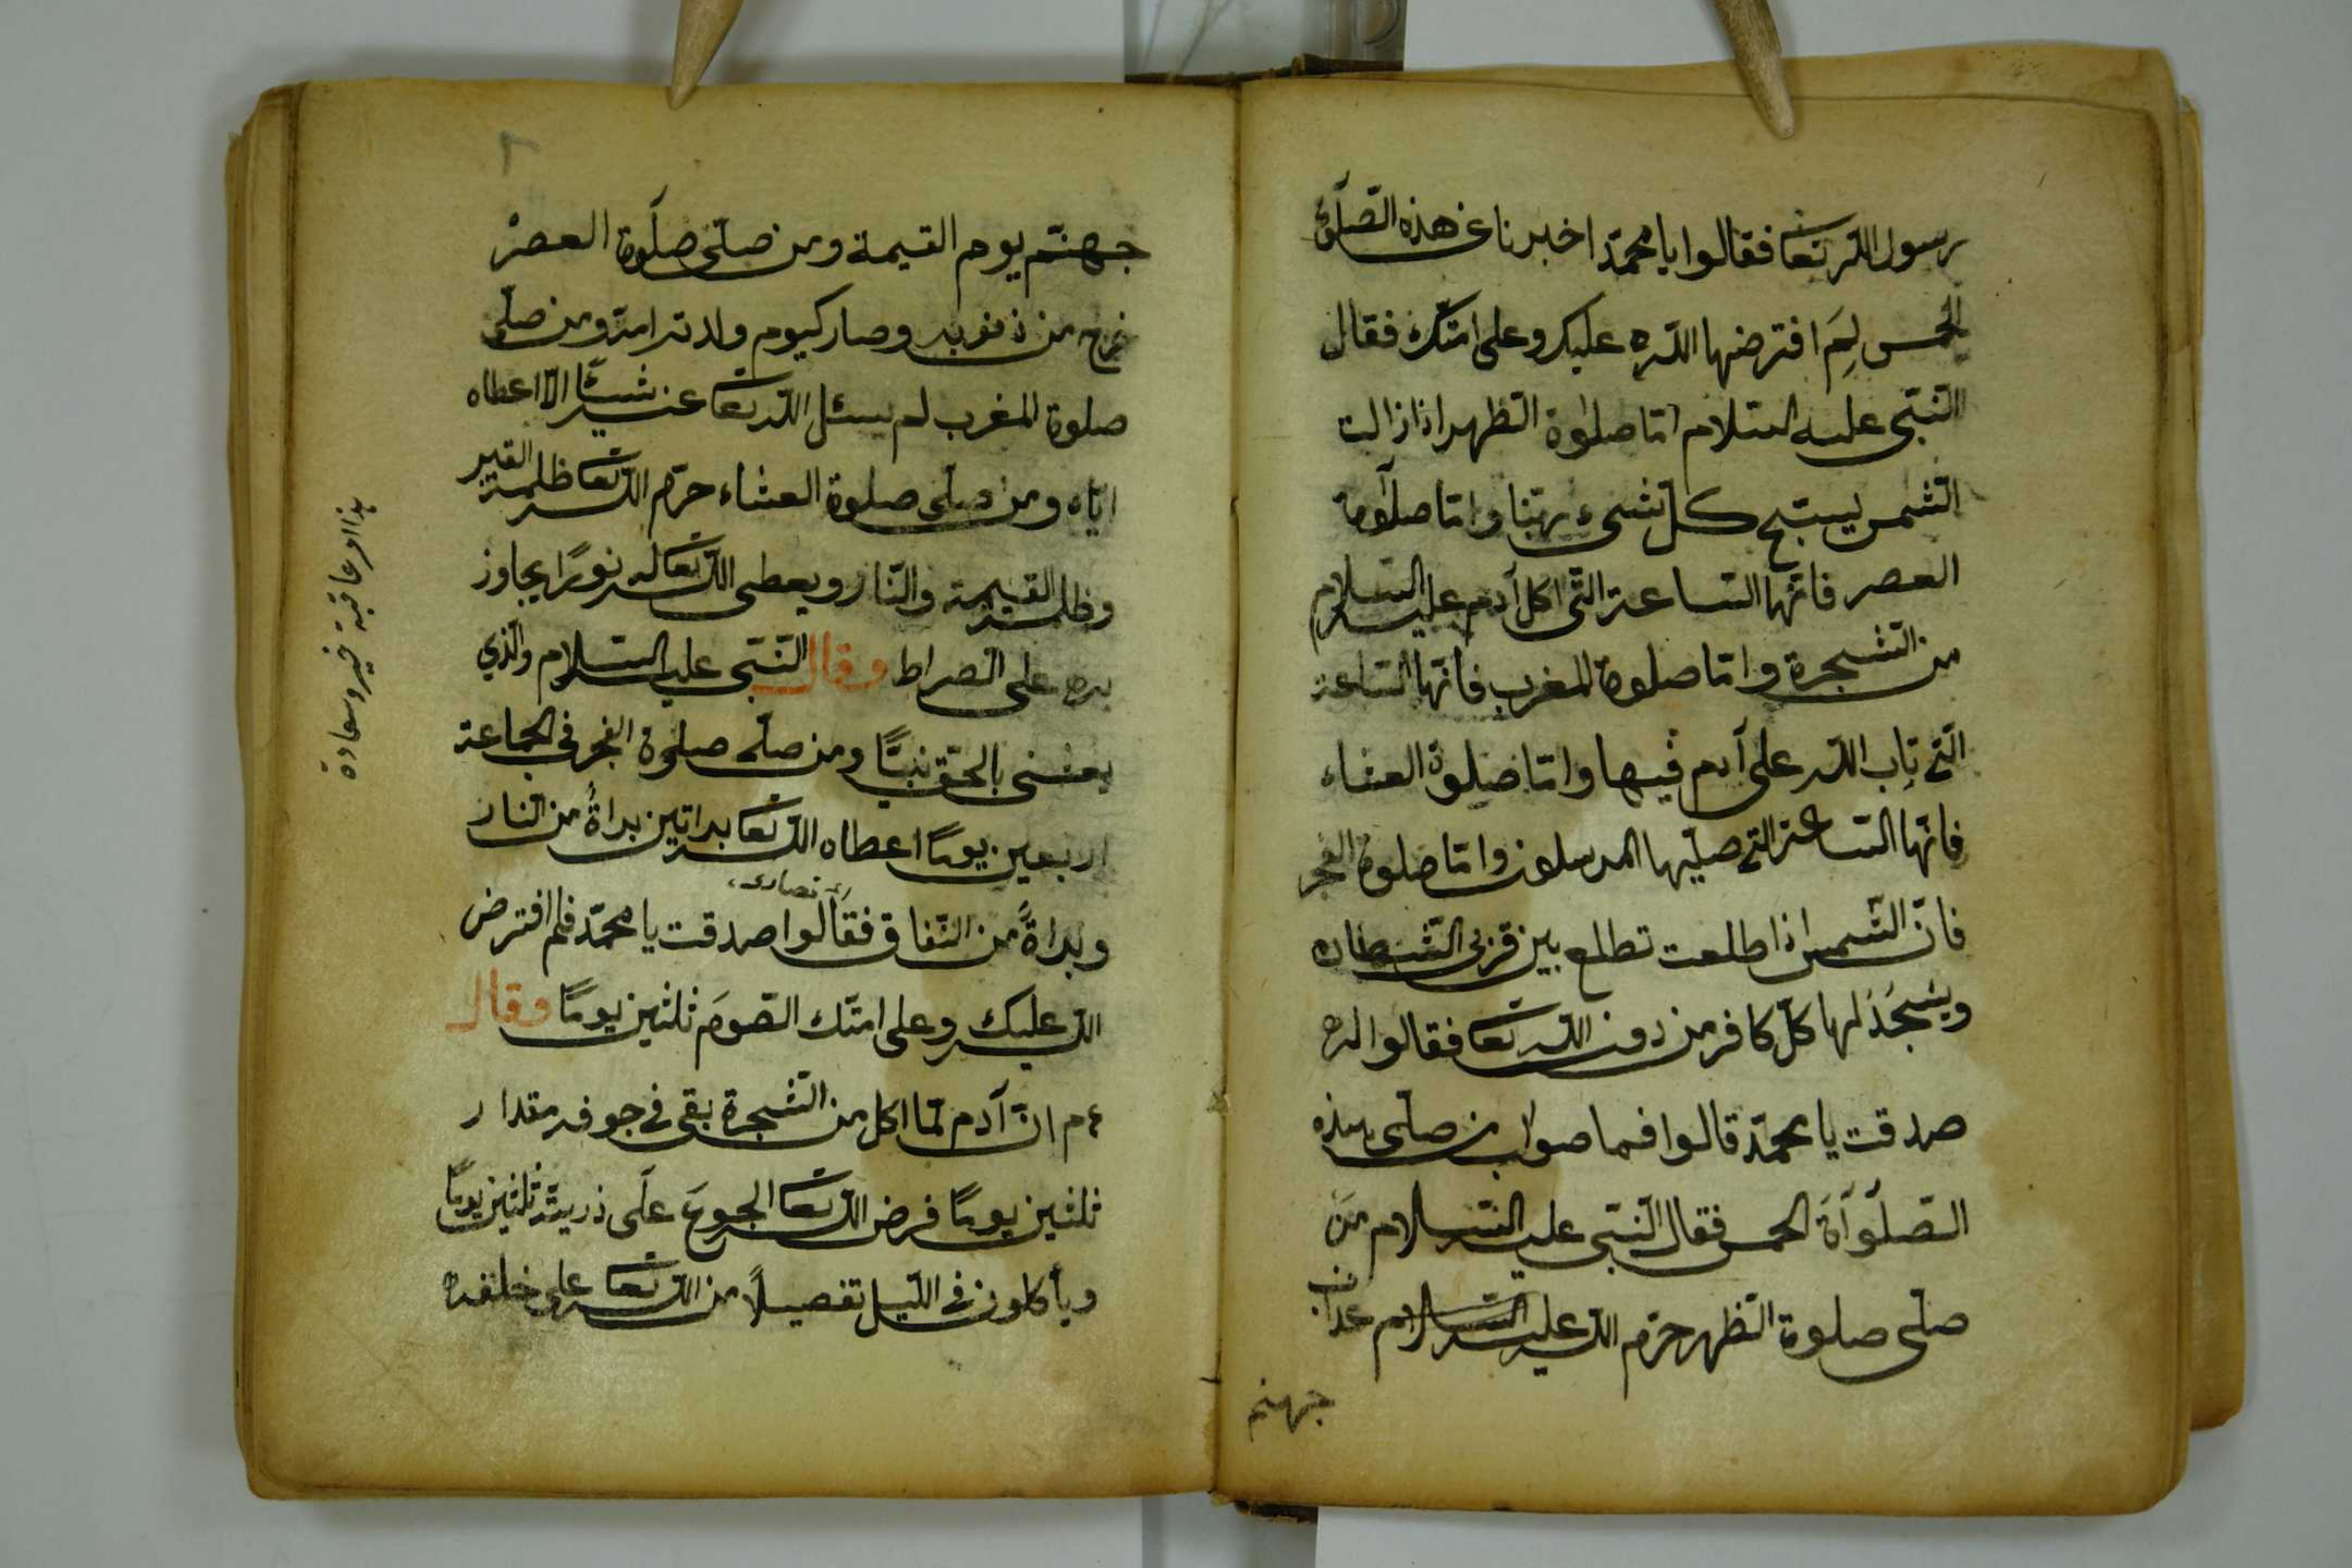 رسول الله تعا فقالوا يا محمّد اخبرنا عن هذه الصّلوة
الخمس لِمَ افترضها اللّه عليك وعلى امّتك فقال
النّبّى عليه السّلام امّا صلوة الظّهر اذا زالت
الشّمس يسبّح كلّ شىء ربّنا وامّا صلوة
العصر فانّها السّاعة الّتى اكل آدم عليه السّلام
من الشّجرة وامّا صلوة المغرب فانّها السّاعة
الّتى تاب اللّه على آدم فيها وامّا صلوة العشاء
فانّها السّاعة الّتى صلّيها المرسلون وامّا صلوة الفجر
فانّ الشّمس اذا طلعت تطلع بين قرنى الشّيطان
ويسجُدُ لها كلّ كافر من دون اللّه تعا فقالوا له
صدقت يا محمّد قالوا فما صواب من صلّى هذه
الصّلوَاةَ الخمس فقال النّبّى عليه السّلام مَن
صلّى صلوة الظّهر حرّم اللّه عليه السّلام عذاب
جهنم
جهنّم يوم القيمة ومن صلّى صلوة العصر
خرج من ذنوبه وصار كيوم ولدته امّه ومن صلّى
صلوة المغرب لم يسئل اللّه تعا عنه شيئًا الّا اعطاه
ايّاه ومن صلّى صلوة العشاء حرّم اللّه تعا ظلمة القبر
وظلمة القيمة والنّار ويعطى اللّه تعا له نورًا يجاوز
به على الصّراط وقال النّبّى عليه السّلام والّذي
بعثنى بالحقّ نبيًّا ومن صلّى صلوة الفجر فى الجماعة
اربعين يومًا اعطاه اللّه تعا براتين براةً من النّار
وبراةً من النّفاق فقالوا صدقت يا محمّد فلم افترض
اى نصارى
اللّه عليك وعلى امّتك الصّومَ ثلثين يومًا وقال
ع م انّ آدم لمّا اكل من الشّجرة بقى فى جوفه مقدار
ثلثين يومًا فرض اللّه تعا الجوعَ على ذريته ثلثين يومًا
وياكلون فى اللّيل تفصيلاً من اللّه تعا على خلقه
عاقبة خير وسعادة